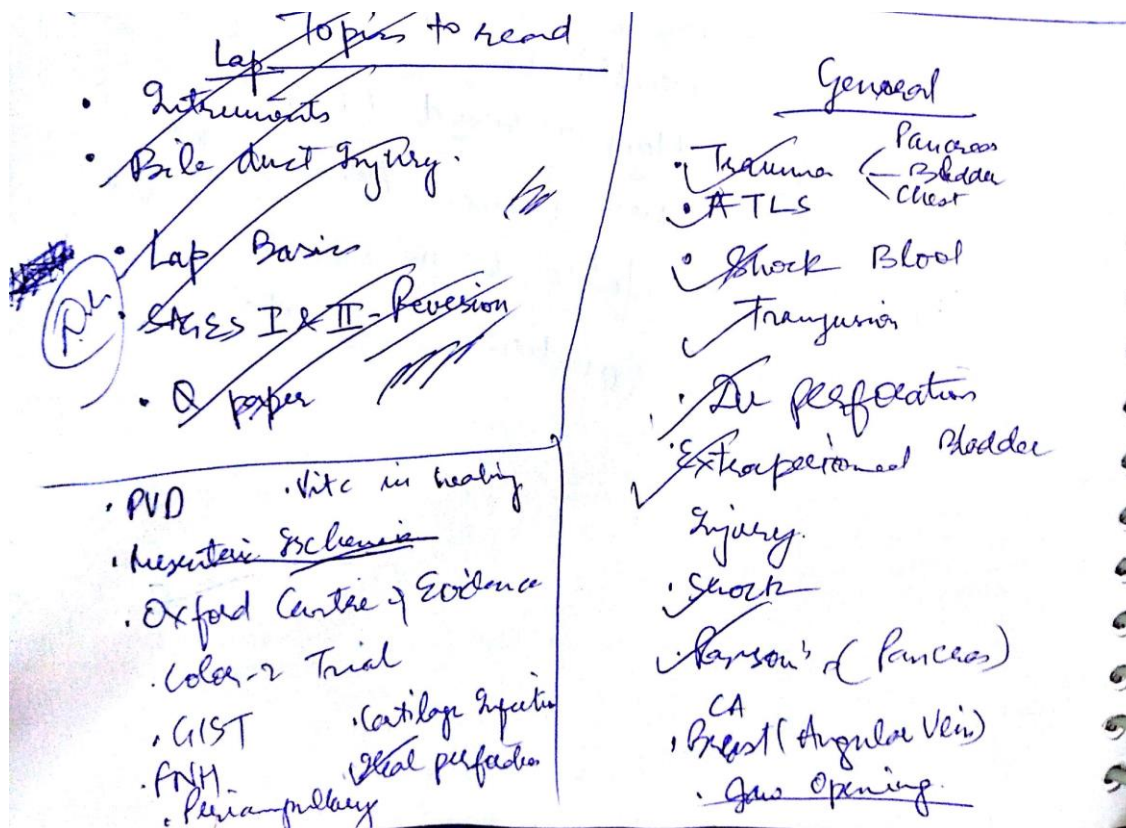 Topics to read
Lap
• Intruments
• Bile duct Injury.
• Lap Basics
• SAGES I & II - Revesion
• Q paper
• PVD
• Vit c in healing
• Mesenteric Ischemia
• Oxford Centre of Evidence
• Color-2 Trial
• GIST
• Cartilage Infection
• FNH
• Ileal perforation
• Periampullary
General
• Trauma
Pancreas
Bladder
Chest
• ATLS
• Shock Blood
Transfusion
• DU perforation
• Extraperitoneal Bladder
Injury.
• Shock
• Ranson's (Pancreas)
CA
• Breast (Angular Vein)
• Jaw Opening.